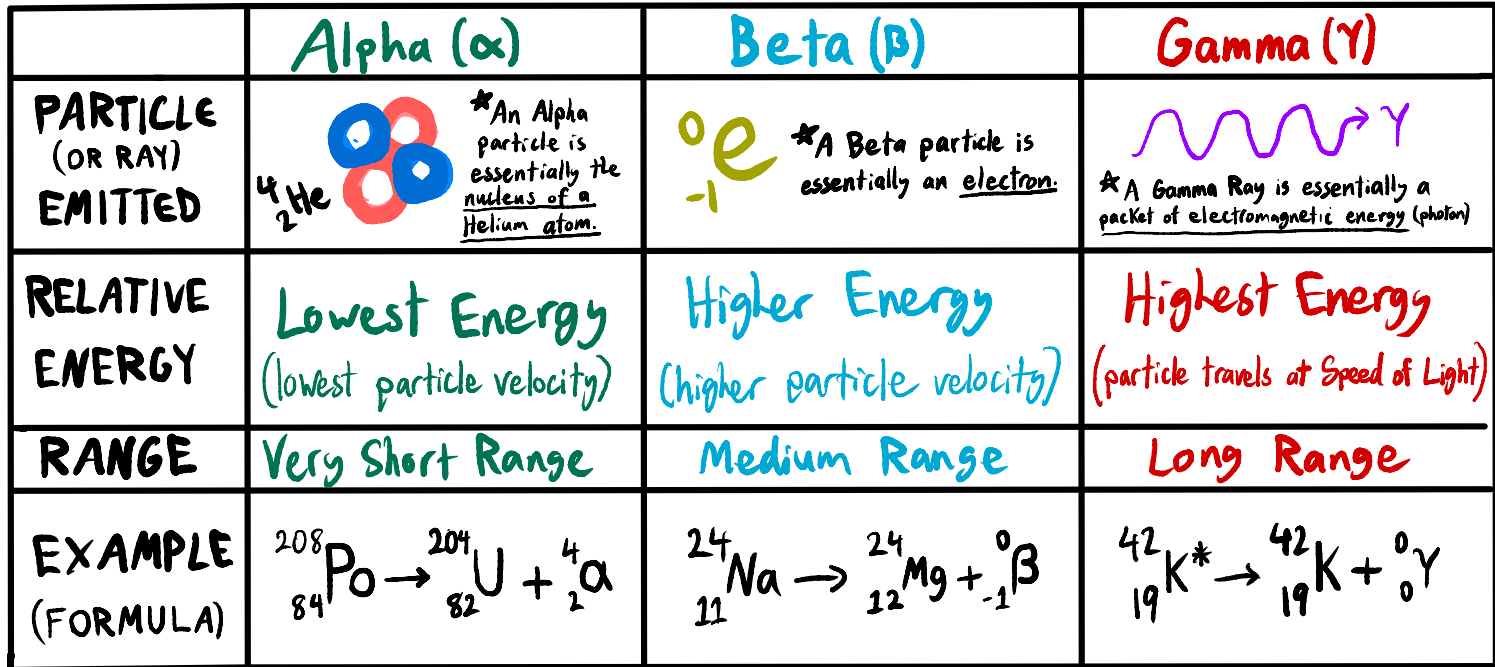 Alpha (α)
Beta (β)
Gamma (γ)
PARTICLE
(OR RAY)
EMITTED
⁴₂He
*An Alpha
particle is
essentially the
nucleus of a
Helium atom.
⁰₋₁e
*A Beta particle is
essentially an electron.
γ
*A Gamma Ray is essentially a
packet of electromagnetic energy (photon)
RELATIVE
ENERGY
Lowest Energy
(lowest particle velocity)
Higher Energy
(higher particle velocity)
Highest Energy
(particle travels at Speed of Light)
RANGE
Very Short Range
Medium Range
Long Range
EXAMPLE
(FORMULA)
²⁰⁸₈₄Po → ²⁰⁴₈₂U + ⁴₂α
²⁴₁₁Na → ²⁴₁₂Mg + ⁰₋₁β
⁴²₁₉K* → ⁴²₁₉K + ⁰₀γ